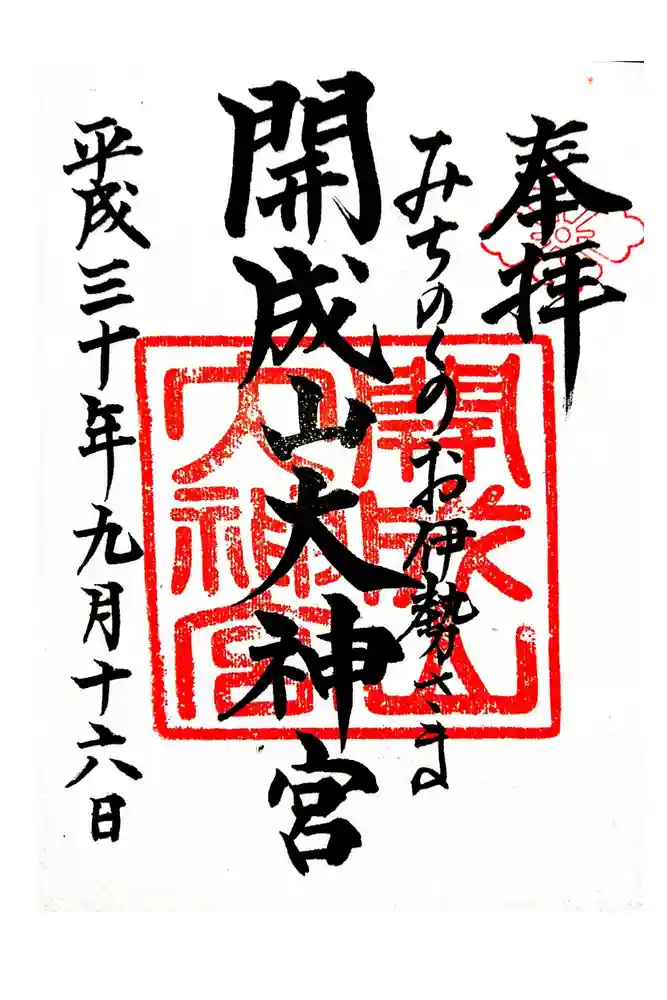 奉拝
みちのくのお伊勢さま
開成山大神宮
平成三十年九月十六日
開成山
大神宮